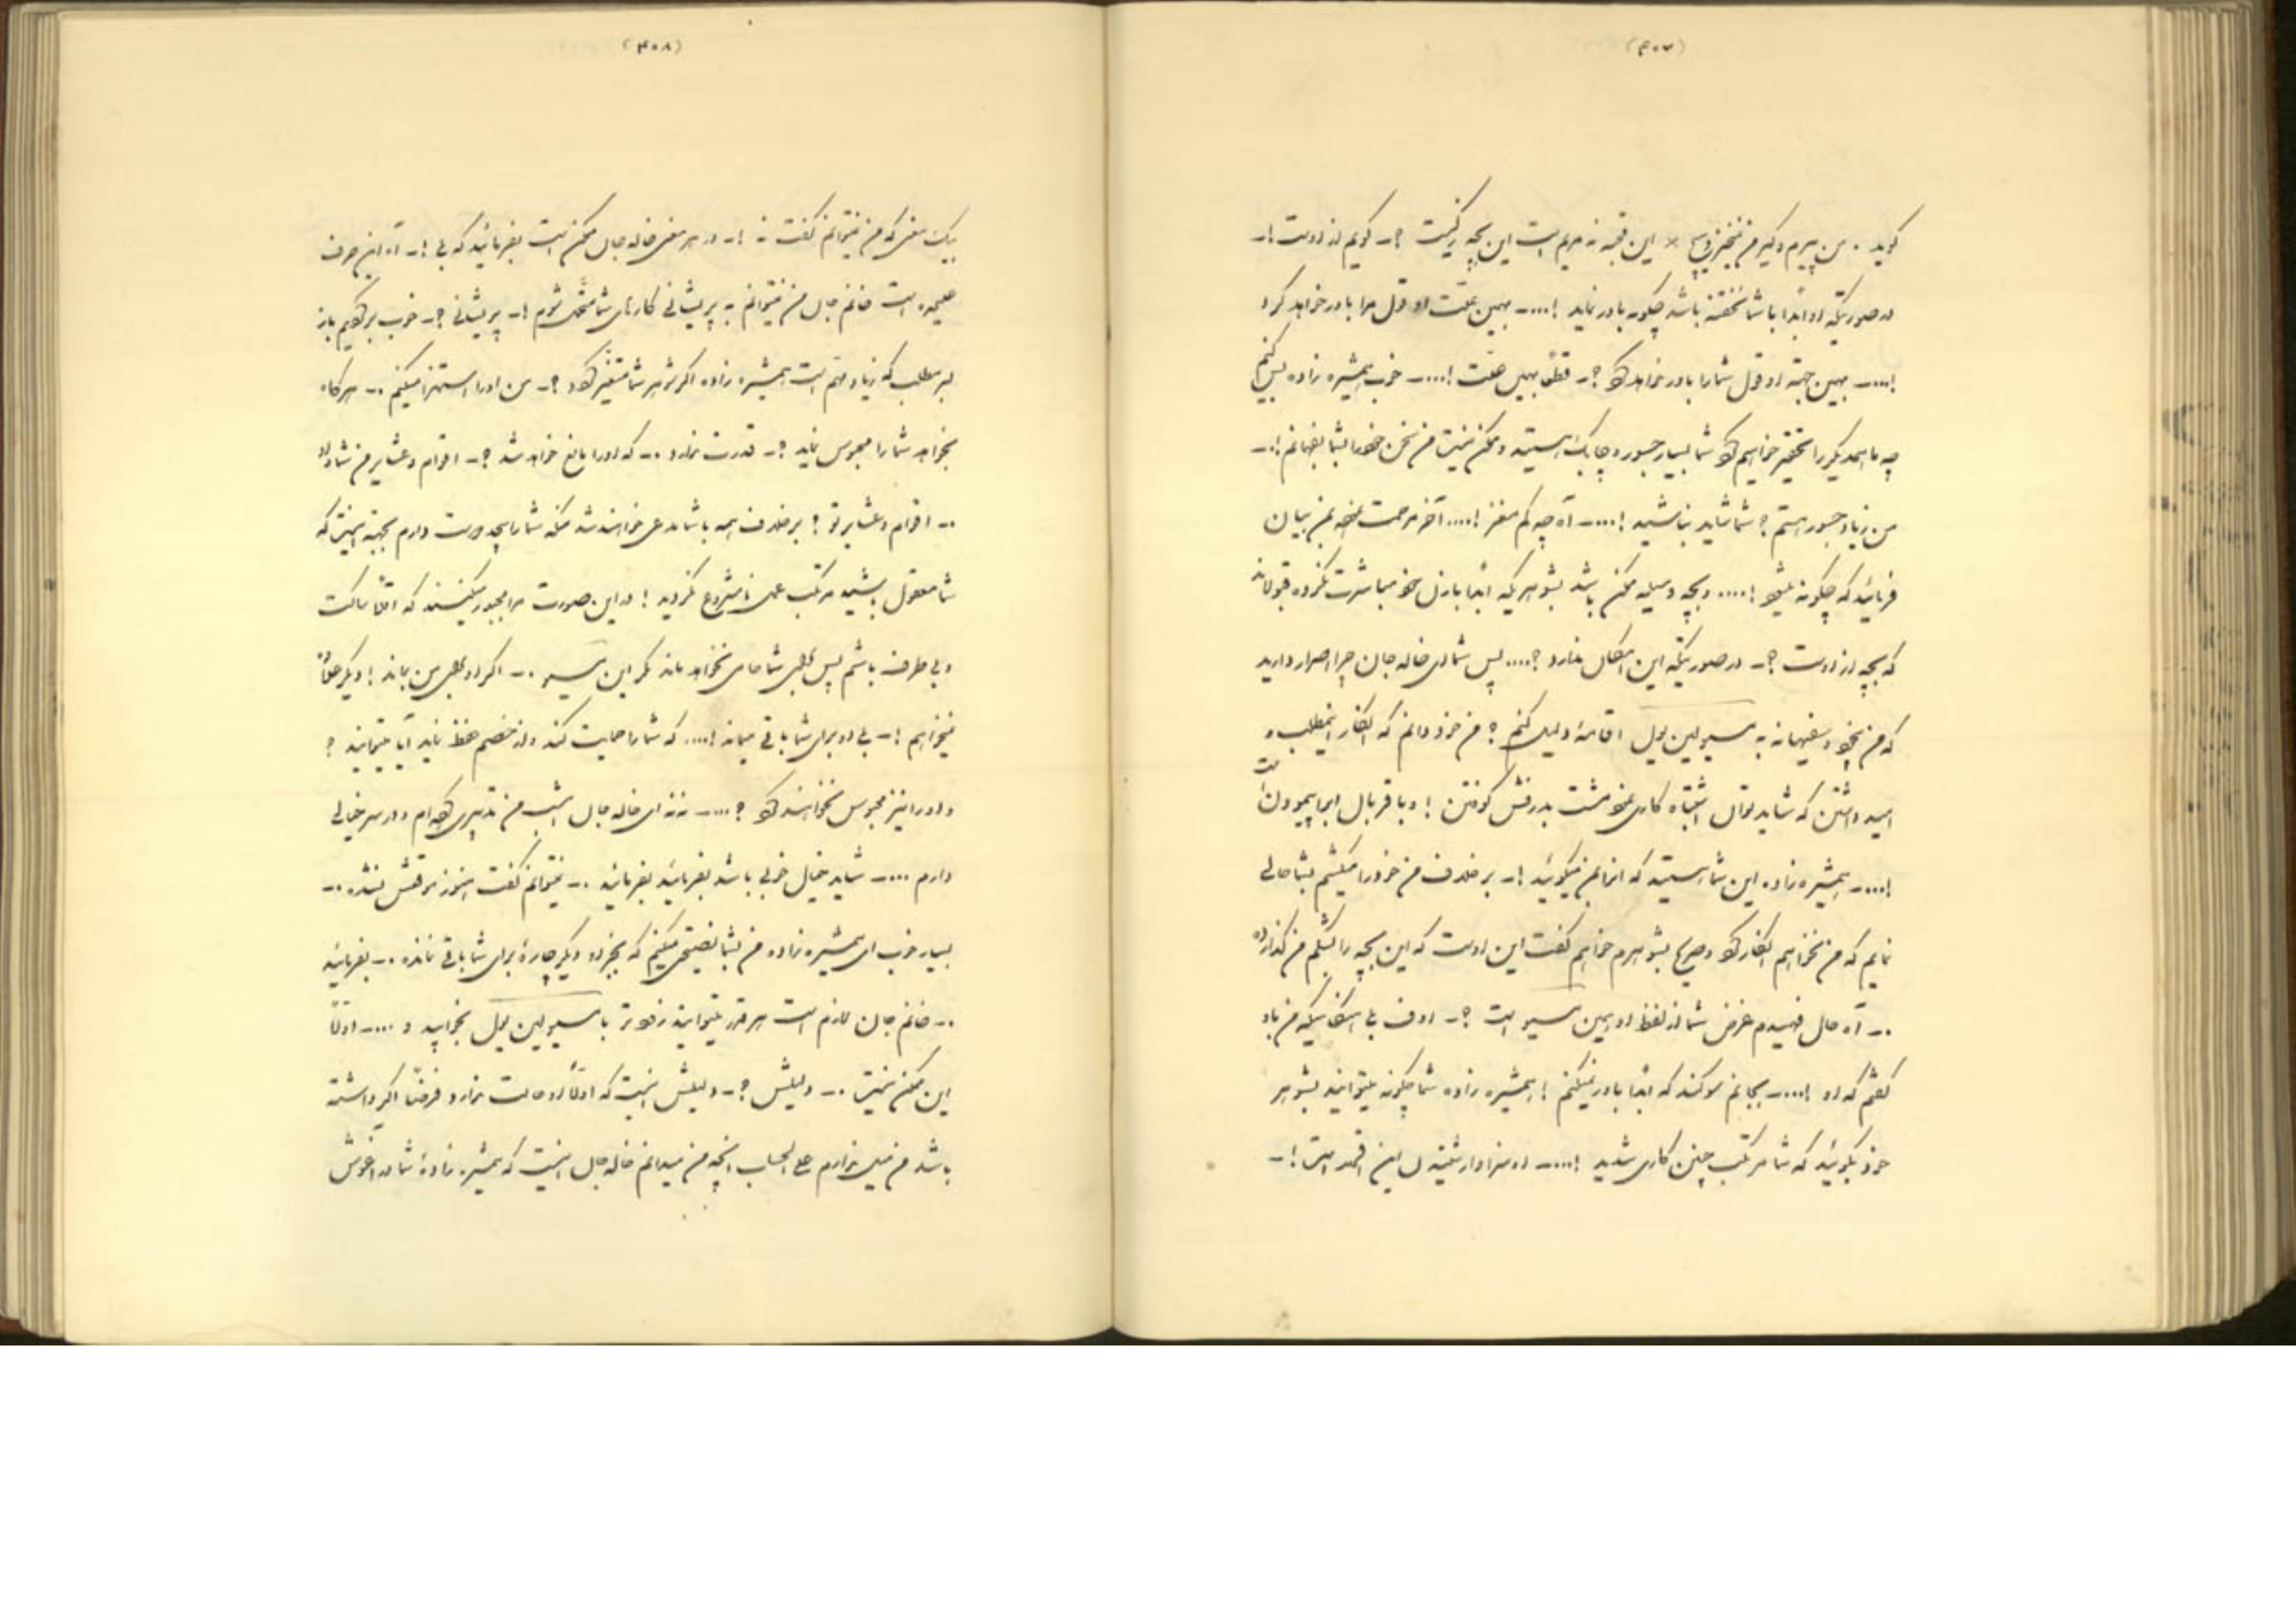 (۴۰۷)
گوید . من پیرم و کبرم این قحبه نه مریم است این بچه از کیست ؟ ـ گویم از اوست ! ـ
در صورتیکه او ابداً با شما نخفته باشد چگونه باور نماید !.... ـ بهمین علّت او قول مرا باور خواهد کرد
!.... ـ بهمین جهة او قول شما را باور خواهد کرد ؟ ـ قطعاً بهمین علّت !.... ـ خوب همشیره زاده پس
چه ما همدیگر را تحقیر خواهیم کرد شما بسیار جسور و چابک هستید و ممکن نیست من سخن خود را بشما بفهمانم ! ـ
من زیاد جسور هستم ؟ شما شاید نباشید !.... ـ آه چه کم مغز !.... آخر مرحمت بمن بیان
فرمائید که چگونه میشود !.... و بچه وسیله ممکن باشد بشوهریکه ابداً با زن خود مباشرت نکرده قبولاند
که بچه از اوست ؟ ـ در صورتیکه این امکان ندارد ؟.... پس شما ای خاله جان چرا اصرار دارید
که من بیخود و سفیهانه به مسیو لین یول اقامهٔ دلیل کنم ؟ من خود دانم که انکار اینمطلب و
امید داشتن که شاید بتوان اشتباه کاری نمود مشت بدرفش کوفتن ! و با غربال آب پیمودنست
!.... ـ همشیره زاده این شما هستید که انرا بمن میگوئید ! ـ بر خلاف من خود را میکشم بشما حالی
نمایم که من نخواهم انکار کرد و صریح بشوهرم خواهم گفت این اوست که این بچه را بشکم من گذارده
. ـ آه حال فهمیدم غرض شما از لفظ او همین مسیو است ؟ ـ اوف بی آنکه من باو
گفتم که او !.... ـ بجانم سوگند که ابداً باور نمیکنم ! همشیره زاده شما چگونه میتوانید بشوهر
خود بگوئید که شما مرتکب چنین کاری شدید !.... ـ او سزاوار شنیدن این است ! ـ
(۴۰۸)
بیک معنی که من نمیتوانم گفت نه ! ـ در هر معنی خاله جان ممکن است بفرمائید که بی ! ـ آه این حرف
علیحده است خانم جان من نمیتوانم به پریشانی کارهای شما متحمّل شوم ! ـ پریشانی ؟ ـ خوب برگردیم باز
بر مطلب که زیاد مهم است همشیره زاده اگر شوهر شما متغیّر گردد ؟ ـ من او را استهزا میکنم . ـ هرگاه
بخواهد شما را محبوس نماید ؟ ـ قدرت ندارد . ـ که او را مانع خواهد شد ؟ ـ اقوام و عشایر من
. ـ اقوام و عشایر تو ؟ بر خلاف همه با شما مدعی خواهند شد منکه شما را بیحد دوست دارم بجهة اینست که
شما معقول باشید مرتکب عمل نامشروع نگردید ! در این صورت مرا مجبور میکنند که اقلاً ساکت
و بی طرف باشم پس برای شما حامی نخواهد ماند مگر این مسیو . ـ اگر او برای من بماند ! دیگر
نمیخواهم ! ـ بی او برای شما باقی میماند !.... که شما را حمایت کند و از خصم حفظ نماید آیا میتواند ؟
و او را نیز محبوس نخواهند کرد ؟.... ـ نه نه ای خاله جان امشب من تدبیری کرده ام و در سر خیالی
دارم .... ـ شاید خیال خوبی باشد بفرمائید بفرمائید . ـ نمیتوانم گفت هنوز موقعش نشده . ـ
بسیار خوب ای همشیره زاده من بشما نصیحتی میکنم که بجز او دیگر چارهٔ برای شما باقی نمانده . ـ بفرمائید
. ـ خانم جان لازم است هر قدر میتوانید زودتر با مسیو لین یول بخوابید و .... ـ اولاً
این ممکن نیست . ـ دلیلش ؟ ـ دلیلش اینست که اولاً او حالت ندارد و فرضاً اگر داشته
باشد من میل ندارم علی الحساب آنچه من میدانم خاله جان اینست که همشیره زادهٔ شما در آغوش